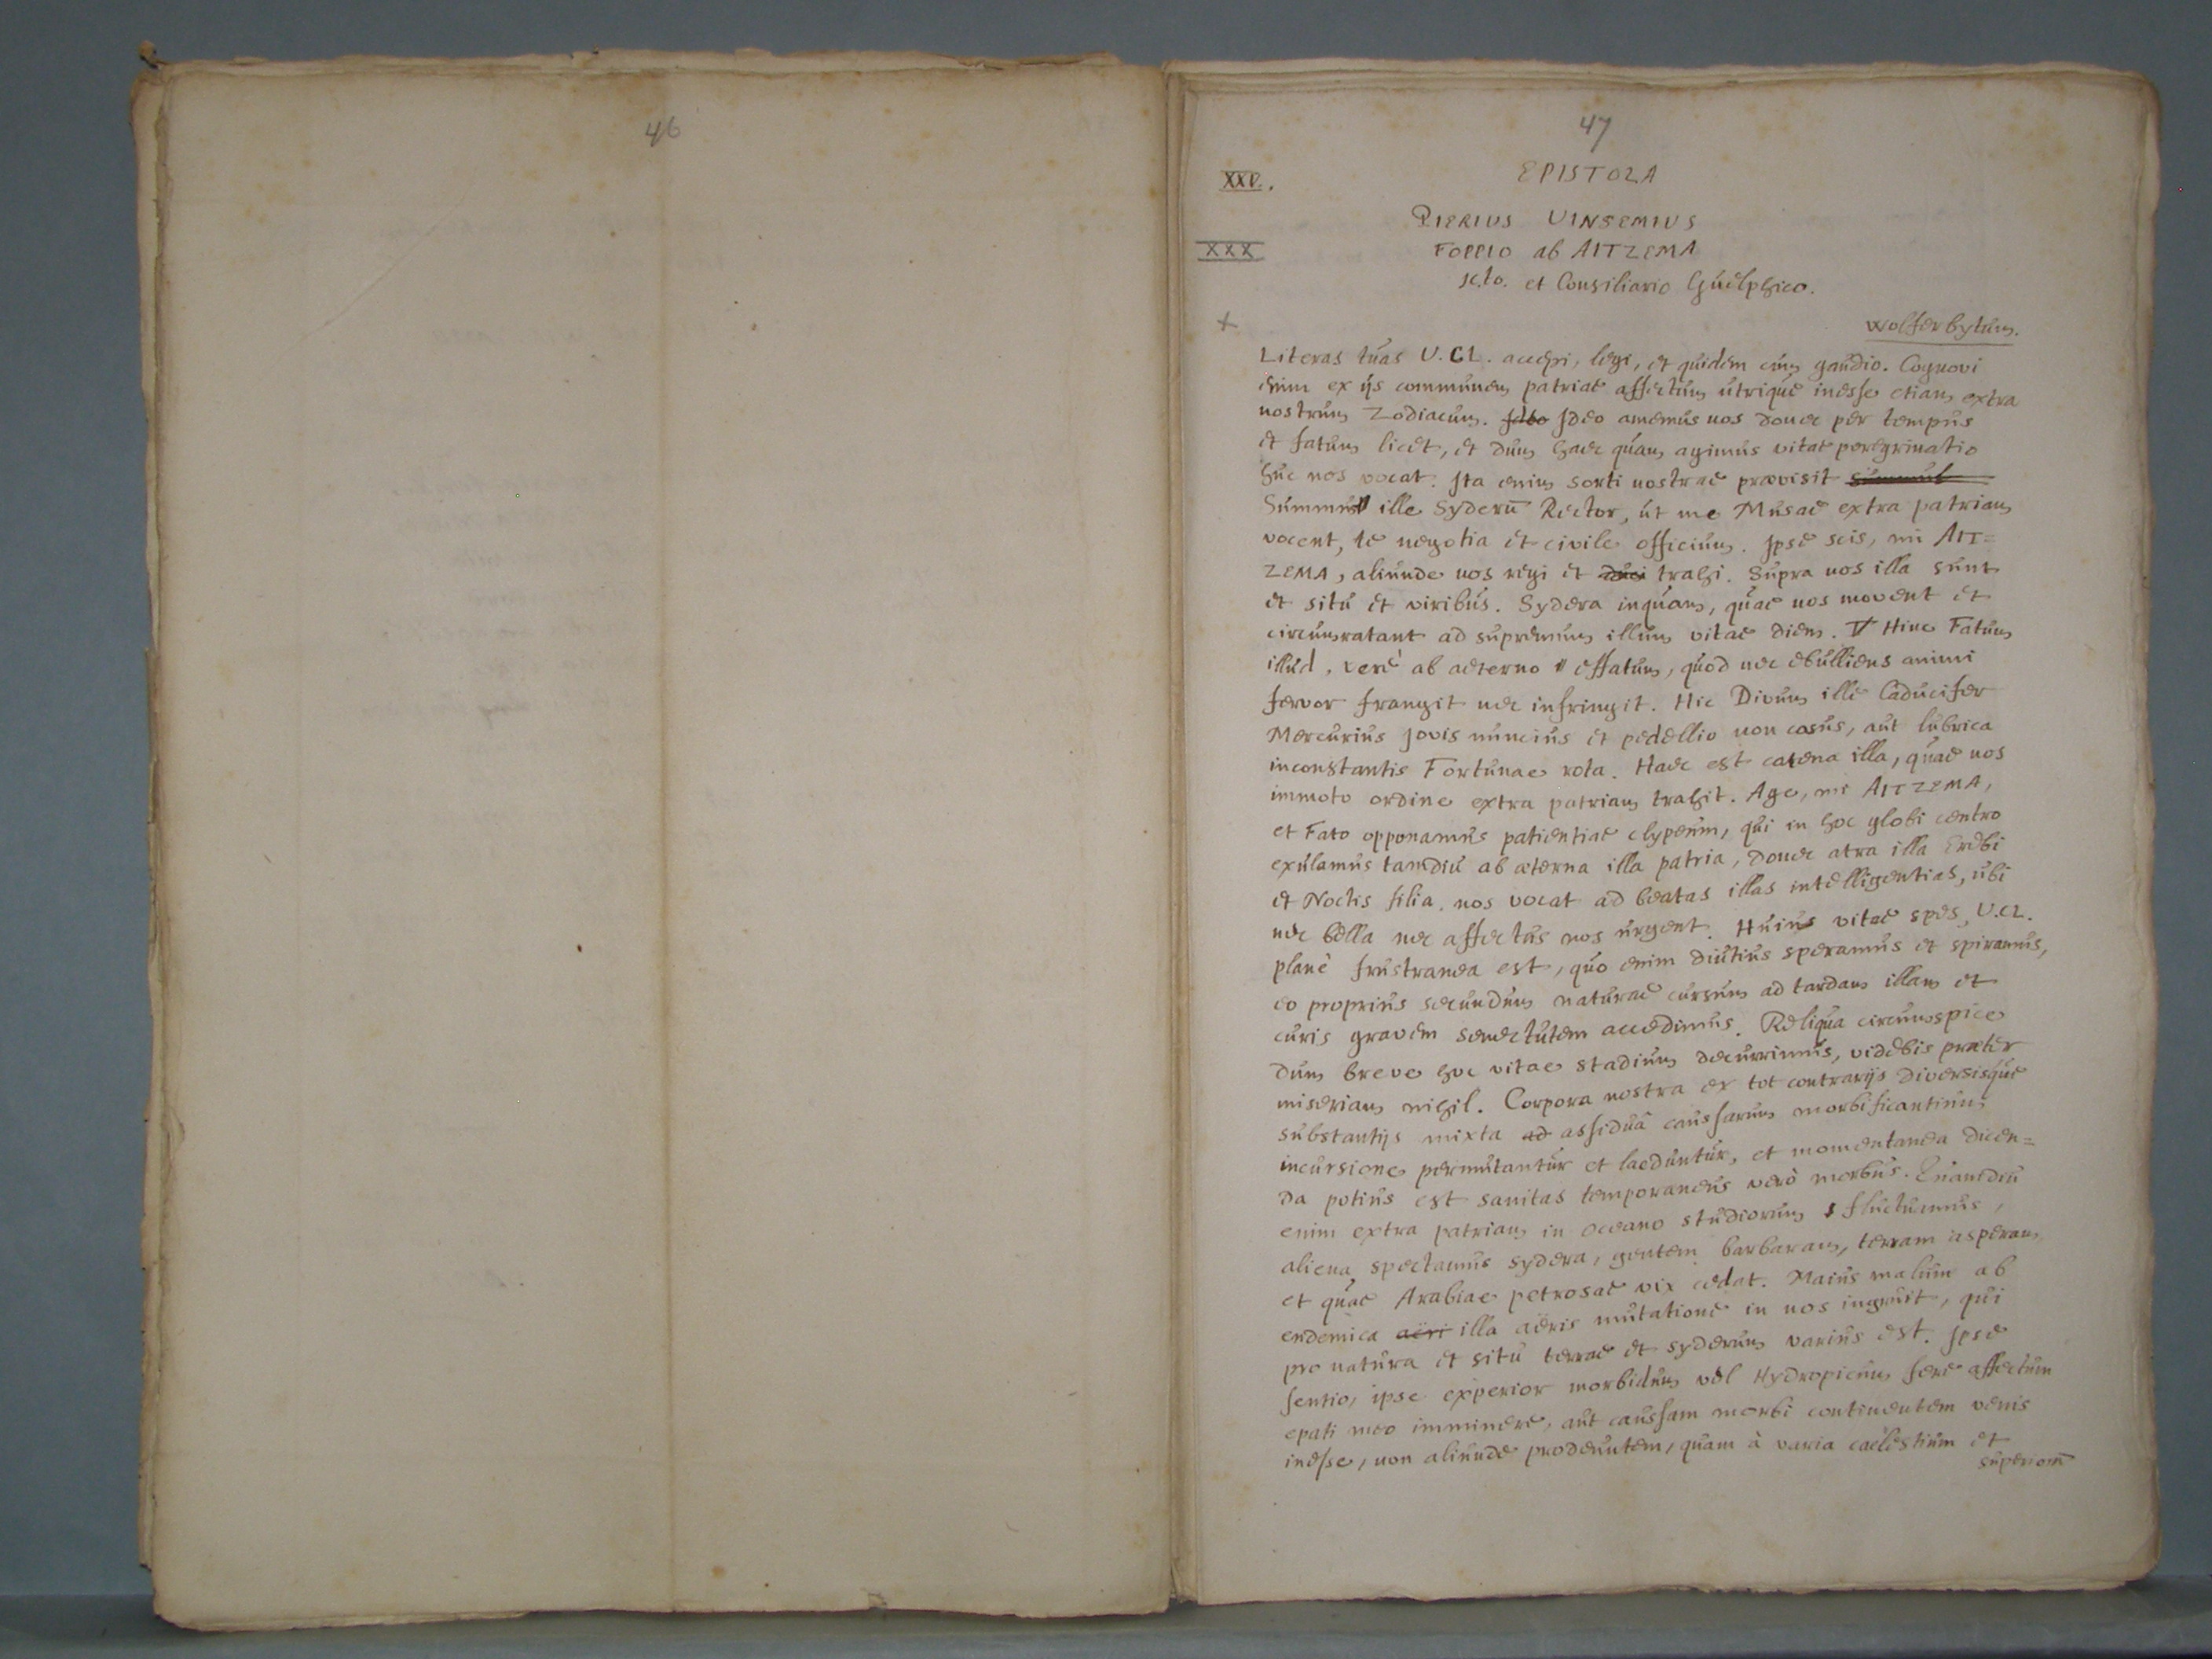 46
47
XXV.
EPISTOLA
PIERIUS UINSEMIUS
XXX
FOPPIO ab AITZEMA
Jc,to. et Consiliario Guelphico.
Wolferbytum.
Literas tuas V.CL. accepi, legi, et quidem cum gaudio. Cognovi
enim ex ijs communem patriae affectum utrique inesse etiam extra
nostrum Zodiacum. Ideo amemus nos donec per tempus
et fatum licet, et dum haec quam agimus vitae peregrinatio
huc nos vocat. Ita enim sorti nostrae praevisit
Summus ille Syderū Rector, ut me Musae extra patriam
vocent, te negotia et civile officium. Ipse scis, mi AIT=
ZEMA, aliunde nos regi et duci trahi. Supra nos illa sunt
et situ et viribus. Sydera inquam, quae nos movent et
circumratant ad supremum illum vitae diem. Hinc Fatum
illud, verè ab aeterno effatum, quod nec ebulliens animi
fervor frangit nec infringit. Hic Divum ille Caducifer
Mercurius Jovis nuncius et pedellio non casus, aut lubrica
inconstantis Fortunae rota. Haec est catena illa, quae nos
immoto ordine extra patriam trahit. Age, mi AITZEMA,
et Fato opponamus patientiae clypeum, qui in hoc globi centro
exulamus tamdiu ab aeterna illa patria, donec atra illa Erebi
et Noctis filia, nos vocat ad beatas illas intelligentias, ubi
nec bella nec affectus nos urgent. Huius vitae spes, V.CL.
planè frustranea est, quo enim diutius speramus et spiramus,
eo proprius secundum naturae cursum ad tardam illam et
curis gravem senectutem accedimus. Reliqua circumspice
dum breve hoc vitae stadium decurrimus, videbis praeter
miseriam nihil. Corpora nostra ex tot contrarijs diversisque
substantijs mixta ad assiduâ caussarum morbificantium
incursione permutantur et laeduntur, et momentanea dicen=
da potius est sanitas temporaneus verò morbus. Quamdiu
enim extra patriam in oceano studiorum fluctuamus,
aliena spectamus sydera, gentem barbaram, terram asperam,
et quae Arabiae petrosae vix cedat. Maius malum ab
endemica aëri illa aëris mutatione in nos ingruit, qui
pro natura et situ terrae et syderum varius est. Ipse
sentio, ipse experior morbidum vel Hydropicum fere affectum
epati meo imminere, aut caussam morbi continentem venis
inesse, non aliunde prodeuntem, quam à varia caelestium et
superiorū